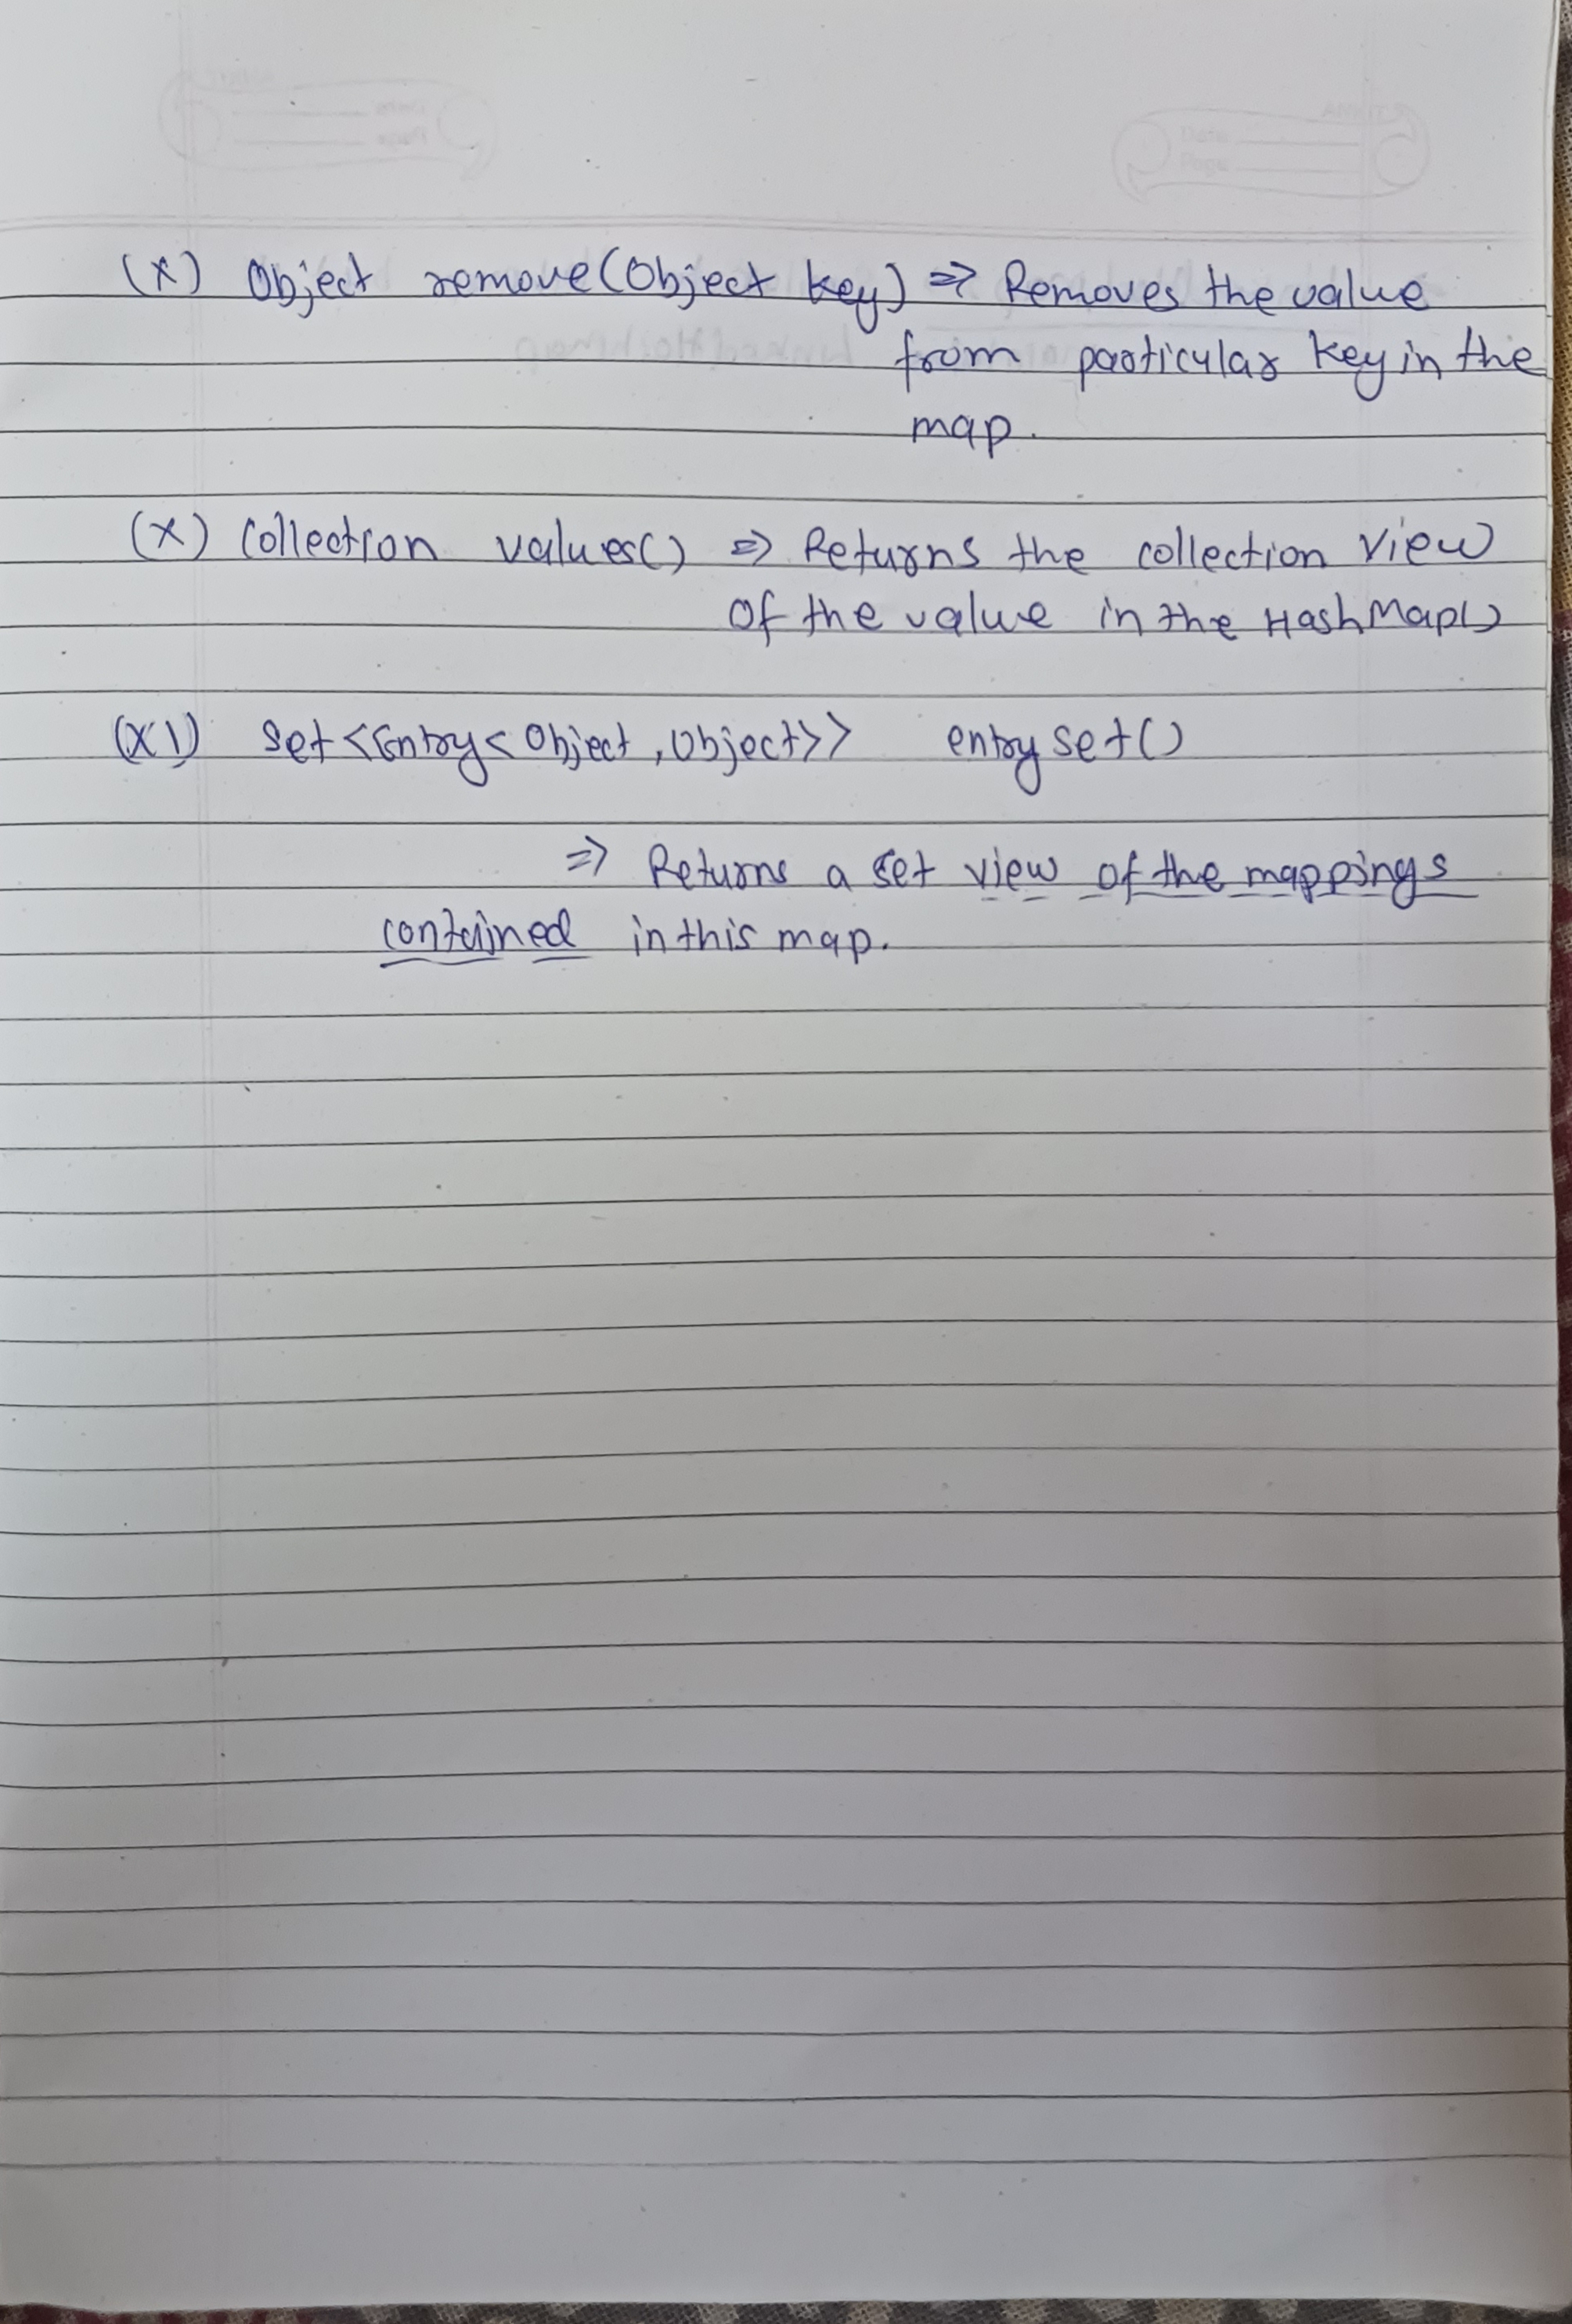 (X) Object remove(Object key) => Removes the value
from particular key in the
map.
(X) Collection values() => Returns the collection view
of the value in the HashMap()
(XI) Set<Entry<Object, Object>> entryset()
=> Returns a set view of the mappings
contained in this map.